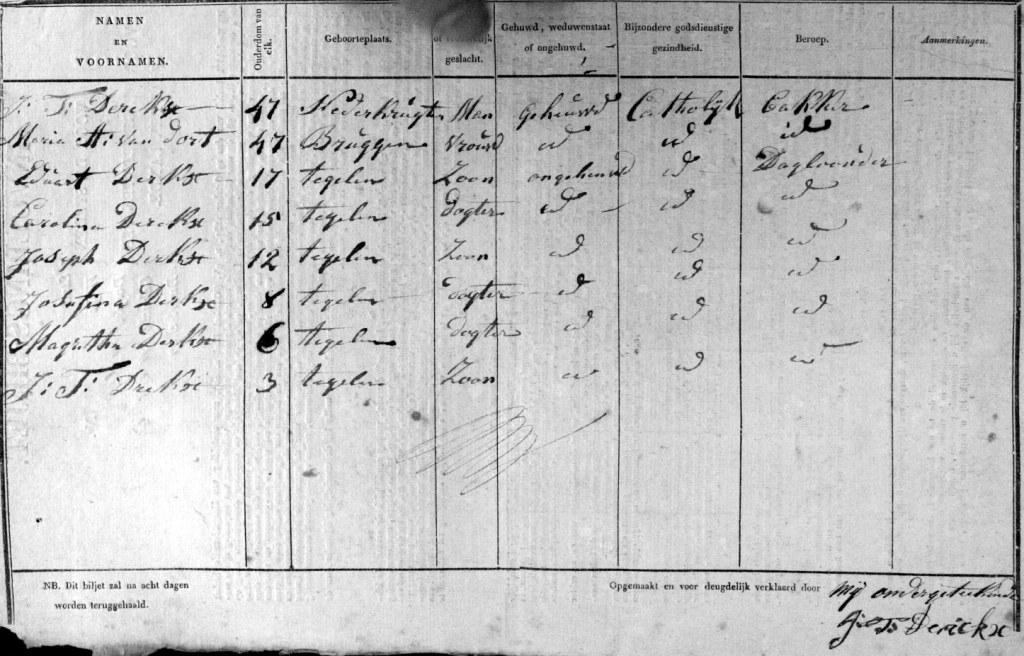 NAMEN EN VOORNAMEN. Ouderdom van elk. Geboorteplaats. of geslacht. Gehuwd, weduwenstaat of ongehuwd. Bijzondere godsdienstige gezindheid. Beroep. Aanmerkingen.
J: T: Derckx 47 Nederkrugten Man gehuwd Catholijk Bakker
Maria H: van dort 47 Bruggen vrouw id id id
Eduart Derkx 17 tegelen Zoon ongehuwd id Dagloonder
Carolina Derckx 15 tegelen dogter id id id
Joseph Derkx 12 tegelen Zoon id id id
Josefina Derkx 8 tegelen dogter id id id
Magretha Derkx 6 tegelen dogter id id id
J: T: Derkx 3 tegelen Zoon id id id
NB. Dit biljet zal na acht dagen
worden teruggehaald.
Opgemaakt en voor deugdelijk verklaard door Mij ondergetekende
J: T: Derickx